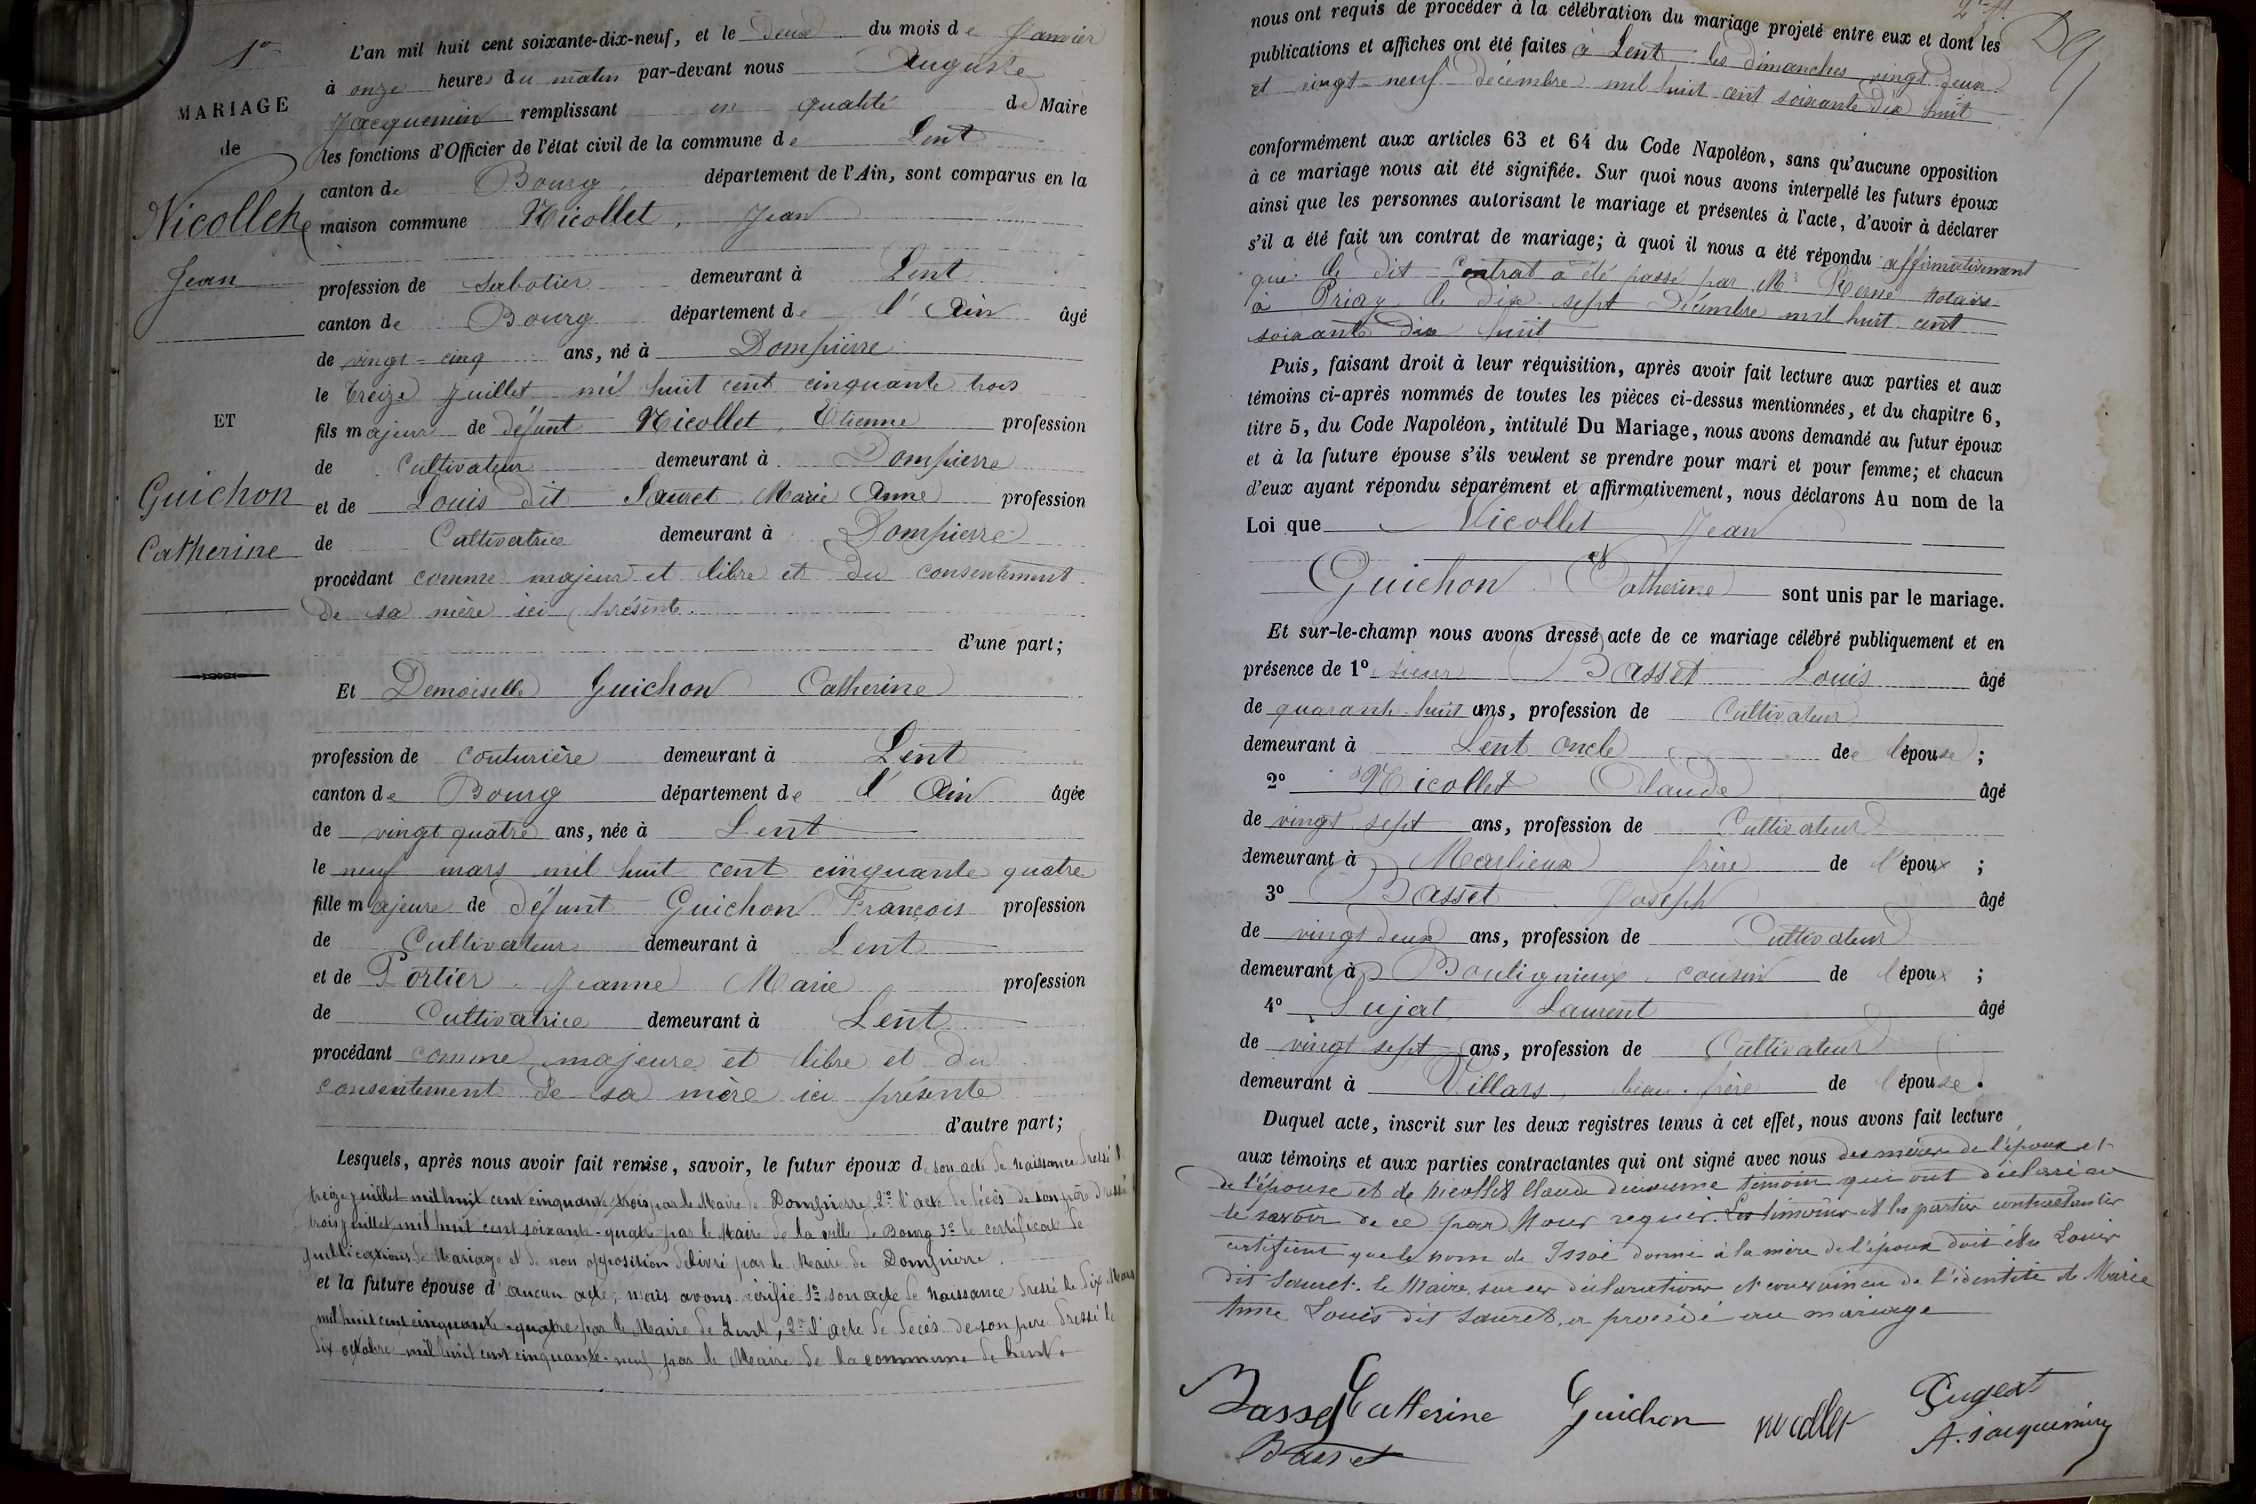 1er
MARIAGE
de
Nicollet
Jean
ET
Guichon
Catherine
L'an mil huit cent soixante-dix-neuf, et le deux du mois de Janvier
à onze heures du matin par-devant nous Auguste
Jacquemin remplissant en qualité de Maire
les fonctions d'Officier de l'état civil de la commune de Lent
canton de Bourg, département de l'Ain, sont comparus en la
maison commune Nicollet, Jean
profession de sabotier demeurant à Lent
canton de Bourg département de l'Ain âgé
de vingt-cinq ans, né à Dompierre
le treize Juillet mil huit cent cinquante trois
fils majeur de défunt Nicollet, Etienne profession
de Cultivateur demeurant à Dompierre
et de Louis dit Sauret Marie Anne profession
de Cultivatrice demeurant à Dompierre
procédant comme majeur et libre et du consentement
de sa mère ici présente.
d'une part;
Et Demoiselle Guichon Catherine
profession de couturière demeurant à Lent
canton de Bourg département de l'Ain âgée
de vingt quatre ans, née à Lent
le neuf mars mil huit cent cinquante quatre
fille majeure de défunt Guichon François profession
de Cultivateur demeurant à Lent
et de Portier Jeanne Marie profession
de Cultivatrice demeurant à Lent
procédant comme majeure et libre et du
consentement de sa mère ici présente
d'autre part;
Lesquels, après nous avoir fait remise, savoir, le futur époux de son acte de naissance dressé le
treize juillet mil huit cent cinquante trois par le Maire de Dompierre 2º l'acte de décès de son père dressé
trois juillet mil huit cent soixante-quatre par le Maire de la ville de Bourg 3º le certificat de
publications de Mariage et de non opposition délivré par le Maire de Dompierre.
et la future épouse d'aucun acte, mais avons vérifié 1º son acte de naissance dressé le dix Mars
mil huit cent cinquante-quatre par le Maire de Lent, 2º l'acte de décès de son père dressé le
dix octobre mil huit cent cinquante-neuf par le Maire de la commune de Lent.
nous ont requis de procéder à la célébration du mariage projeté entre eux et dont les
publications et affiches ont été faites à Lent, les dimanches vingt deux
et vingt-neuf décembre mil huit cent soixante dix huit
conformément aux articles 63 et 64 du Code Napoléon, sans qu'aucune opposition
à ce mariage nous ait été signifiée. Sur quoi nous avons interpellé les futurs époux
ainsi que les personnes autorisant le mariage et présentes à l'acte, d'avoir à déclarer
s'il a été fait un contrat de mariage; à quoi il nous a été répondu affirmativement
que le dit Contrat a été passé par Me notaire
à Priay le dix sept Décembre mil huit cent
soixante dix huit
Puis, faisant droit à leur réquisition, après avoir fait lecture aux parties et aux
témoins ci-après nommés de toutes les pièces ci-dessus mentionnées, et du chapitre 6,
titre 5, du Code Napoléon, intitulé Du Mariage, nous avons demandé au futur époux
et à la future épouse s'ils veulent se prendre pour mari et pour femme; et chacun
d'eux ayant répondu séparément et affirmativement, nous déclarons Au nom de la
Loi que Nicollet Jean
et
Guichon Catherine sont unis par le mariage.
Et sur-le-champ nous avons dressé acte de ce mariage célébré publiquement et en
présence de 1º sieur Basset Louis âgé
de quarante-huit ans, profession de Cultivateur
demeurant à Lent oncle de l'épouse;
2º Nicollet Claude âgé
de vingt sept ans, profession de Cultivateur
demeurant à Marlieux frère de l'époux;
3º Basset Joseph âgé
de vingt deux ans, profession de Cultivateur
demeurant à Bouligneux cousin de l'époux;
4º Sujat Laurent âgé
de vingt sept ans, profession de Cultivateur
demeurant à Villars, beau-frère de l'épouse.
Duquel acte, inscrit sur les deux registres tenus à cet effet, nous avons fait lecture
aux témoins et aux parties contractantes qui ont signé avec nous des mères de l'époux et
de l'épouse et de Nicollet Claude deuxième témoin qui ont déclaré ne
le savoir de ce par Nous requis. Les témoins et les parties contractantes
certifient que le nom de Issoi donné à la mère de l'époux doit être Louis
dit Sauret. le Maire, sur ces déclarations et convaincu de l'identité de Marie
Anne Louis dit Sauret, a procédé au mariage
Basset Catherine Guichon nicollet Sugeat
Basset A. Jacquemin